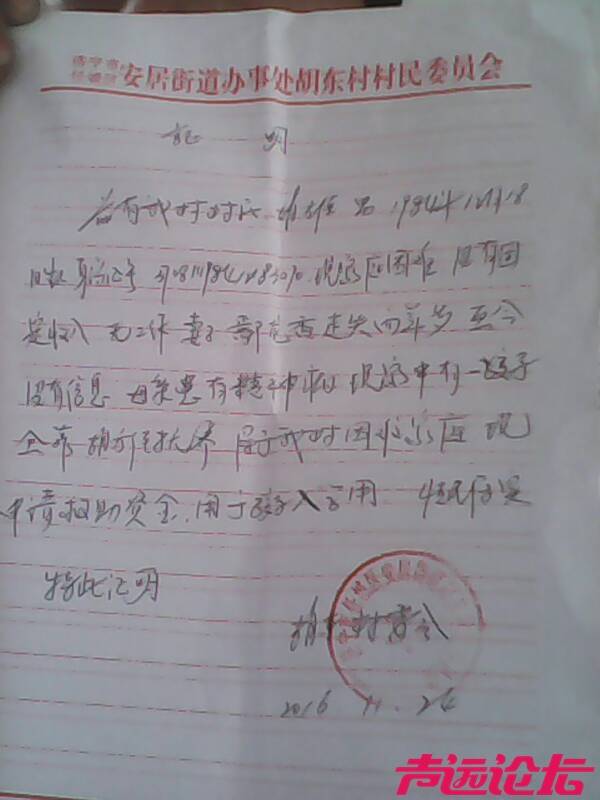 济宁市
任城区 安居街道办事处胡东村村民委员会
证 明
兹有我村村民 男 1984年12月18
日出 身份证号 现家庭困难 没有固
定收入 无工作 妻子 走失 至今
没有信息 母亲患有精神病 现家中有一孩子
全靠 扶养 属于我村困难家庭 现
申请救助资金,用于孩子入学用 情况属实
特此证明
胡东村委会
2016 11.24
声远论坛